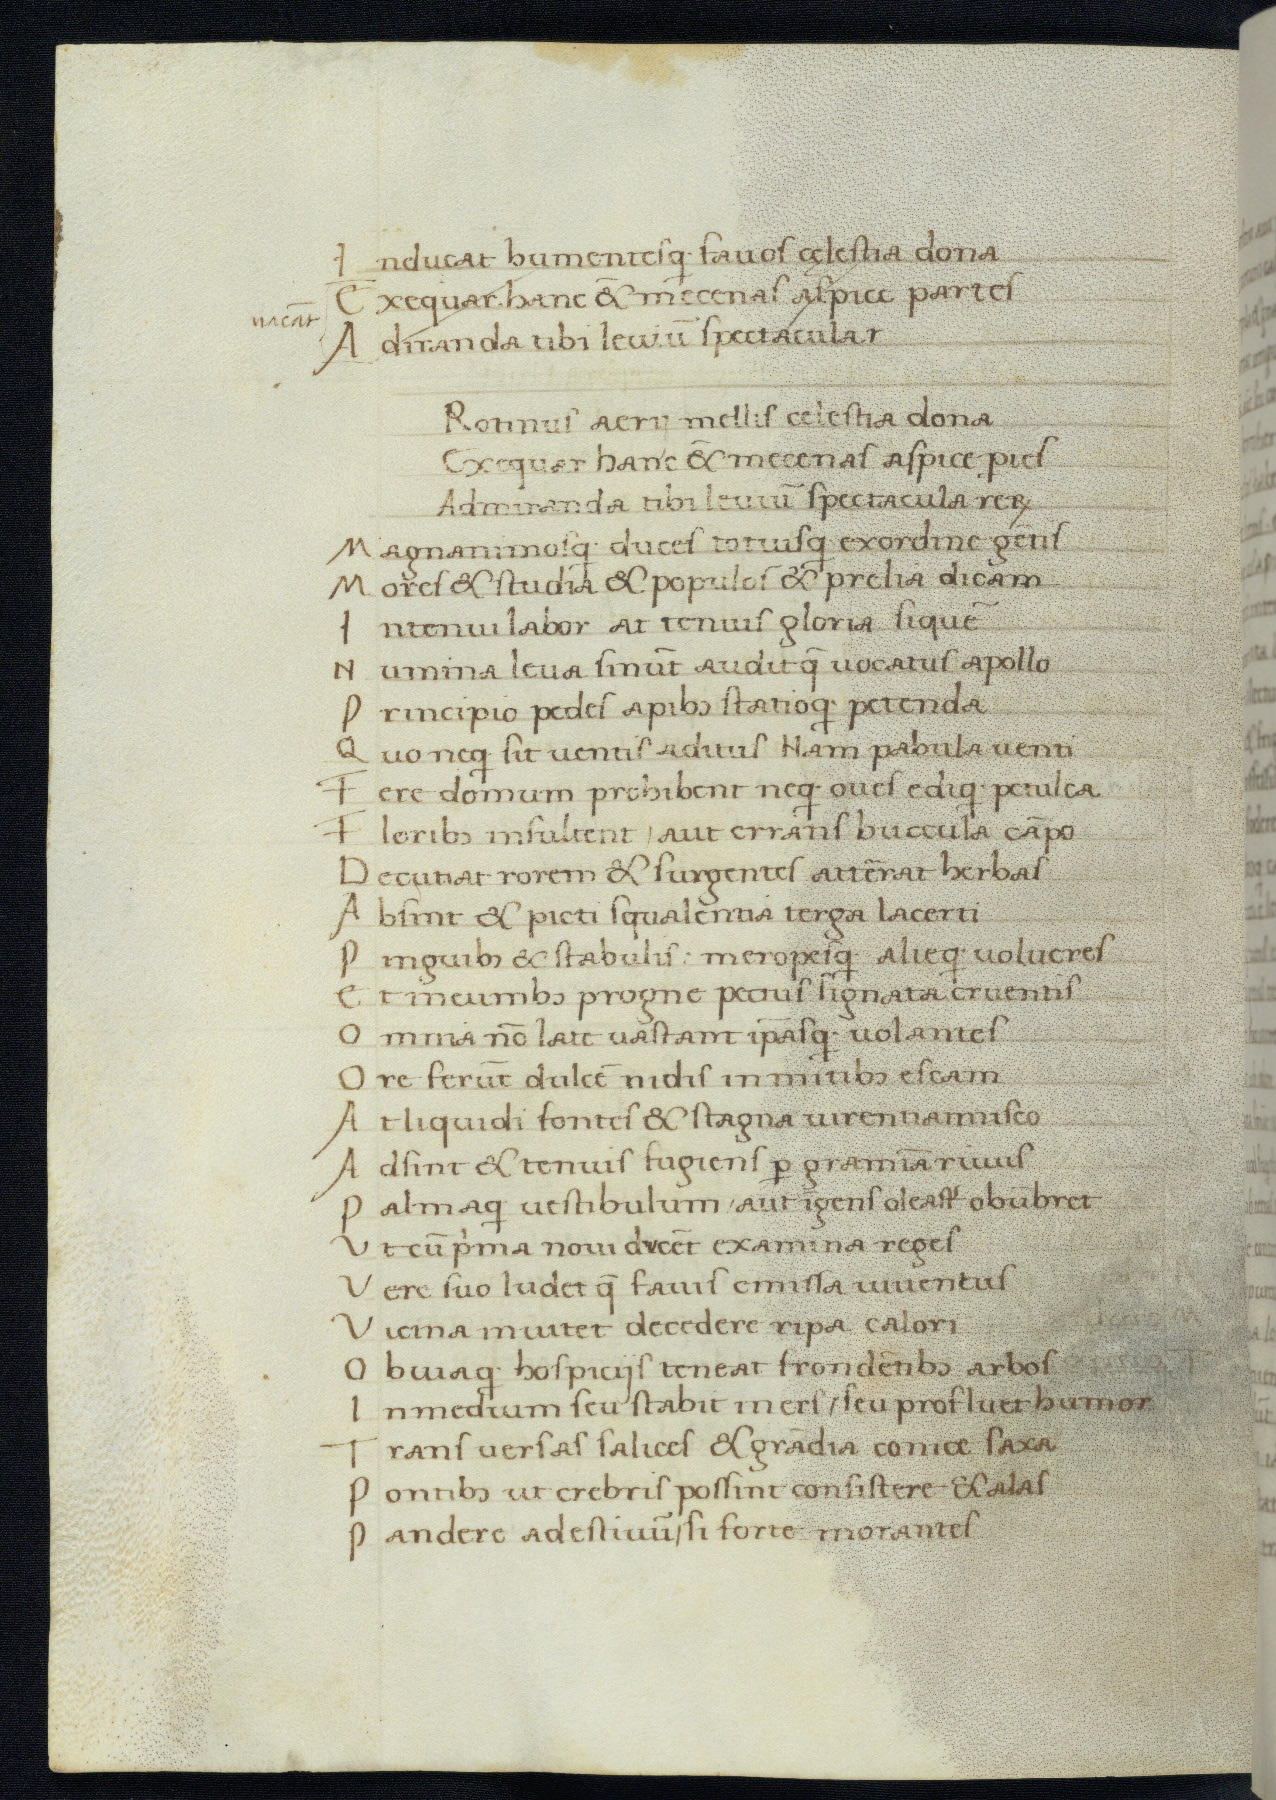 Inducat humentesq fauos cęlestia dona
Exequar hanc & mecenas aspice partes
uacat
Adiranda tibi leuiū spectacular
Rotinus aerij mellis celestia dona
Exequar hanc & mecenas aspice ptes
Admiranda tibi leuiū spectacula rerꝝ
Magnanimosq duces totiusq exordine gētis
Mores & studia & populos & prelia dicam
Intenui labor at tenuis gloria siquē
Numina leua sinūt auditq̄ uocatus apollo
Principio pedes apibꝫ statioq petenda
Quo neq sit uentis aditus Nam pabula uenti
Fere domum prohibent neq oues ediq petulca
Floribꝫ insultent / aut errans buccula cāpo
Decutiat rorem & surgentes atterat herbas
Absint & picti squalentia terga lacerti
Pinguibꝫ & stabulis: meropesq alieq uolucres
Et incumbꝫ progne pectus signata cruentis
Omnia nō late uastant ip̄asq uolantes
Ore ferūt dulcē nidis inmitibꝫ escam
At liquidi fontes & stagna uirentiamusco
Adsint & tenuis fugiens ꝑ gramīa riuus
Palmaq uestibulum / aut īgens oleastr obūbret
Ut cū pͥma noui ducēt examina reges
Vere suo ludet q̄ fauis emissa iuuentus
Vicina inuitet decedere ripa calori
Obuiaq hospicijs teneat frondētibꝫ arbos
Inmedium seu stabit iners / seu profluet humor
Trans uersas salices & grādia conice saxa
Pontibꝫ ut crebris possint consistere & alas
Pandere ad estiuū / si forte morantes